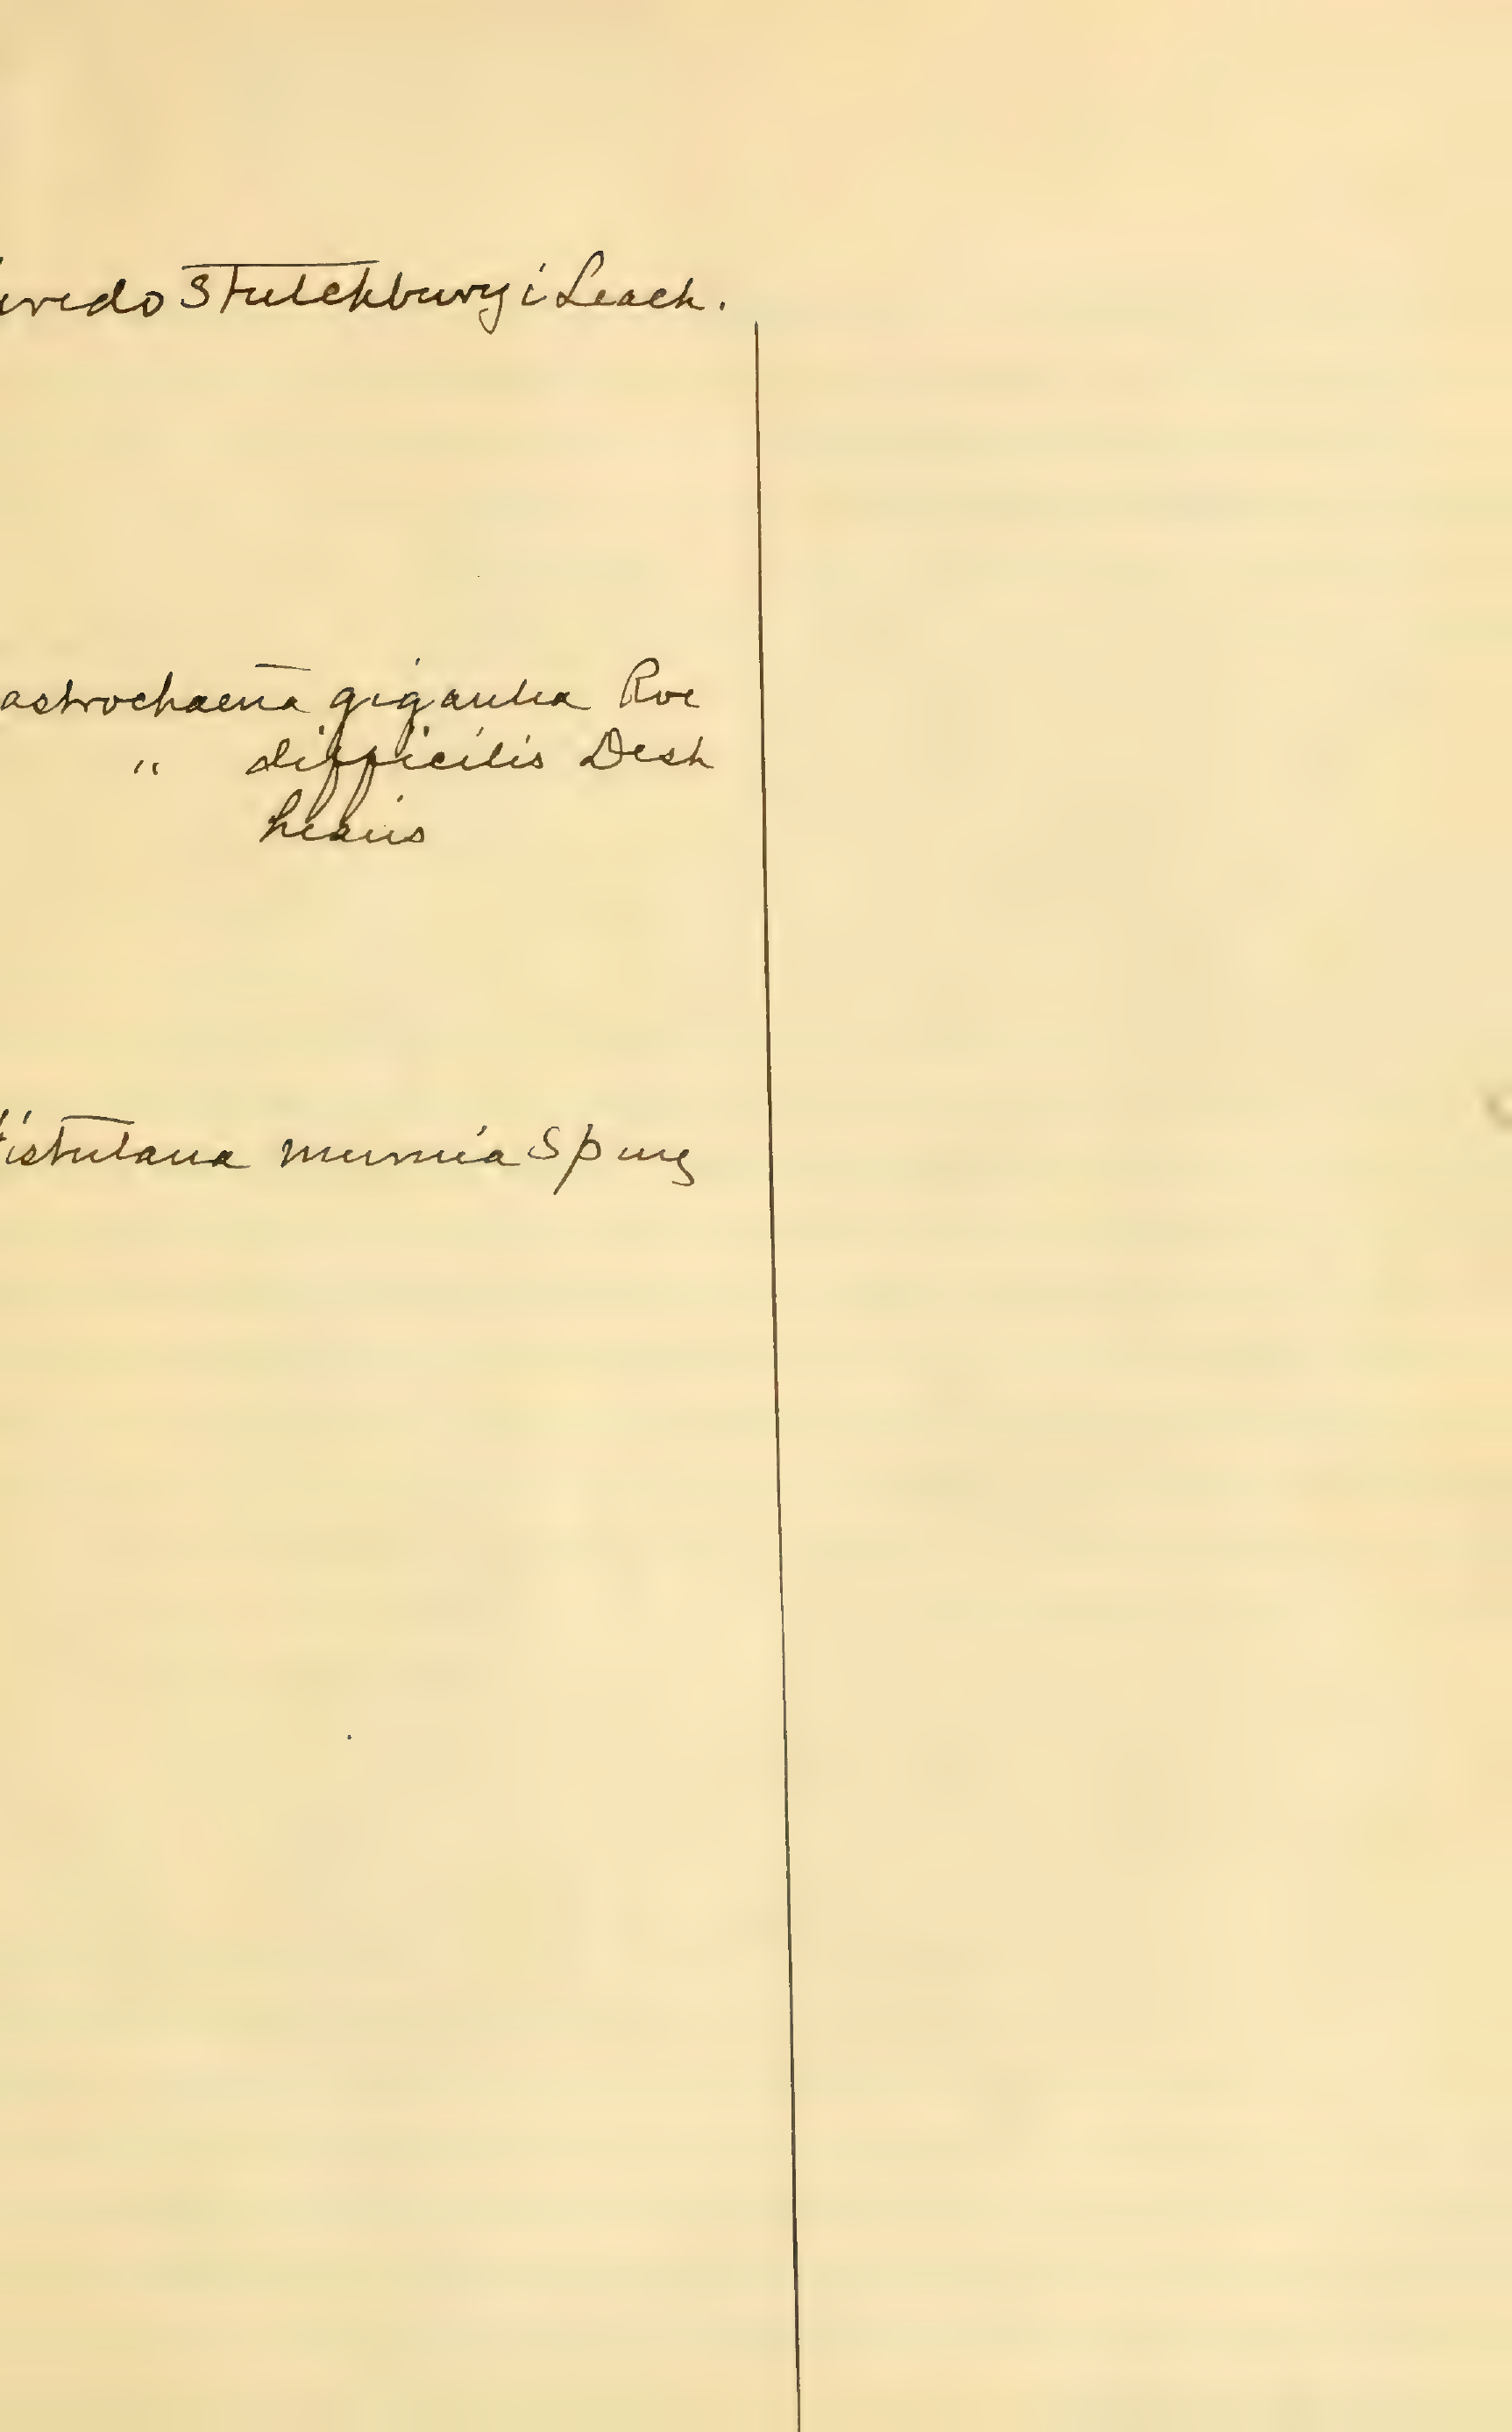 eredo Stutchburyi Leach.
astrochaena gigantea Roe
" difficilis Desh
hians
Fistulana mumia Speng